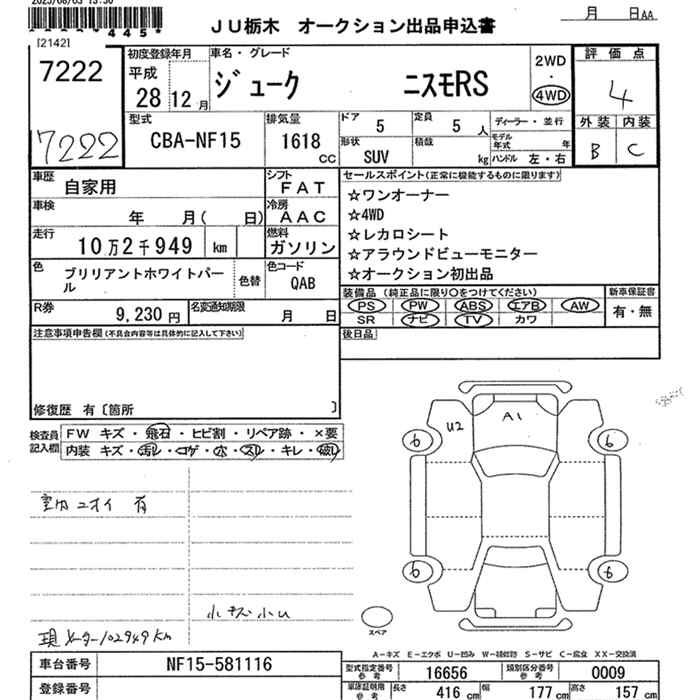 2025/08/05 15:50
4445
[2142]
JU栃木 オークション出品申込書
月 日AA
7222
7222
初度登録年月
平成
28 12 月
車名・グレード
ジューク ニスモRS
2WD
・
4WD
評価点
4
外装 内装
B C
型式
CBA-NF15
排気量
1618
cc
ドア
5
定員
5 人
形状
SUV
積載
kg
ディーラー・並行
モデル年式 年
ハンドル 左・右
車歴
自家用
シフト
FAT
車検
年 月( 日)
冷房
AAC
走行
10万2千949 km
燃料
ガソリン
色
ブリリアントホワイトパール
色替
色コード
QAB
R券
9,230 円
名変通知期限
月 日
セールスポイント(正常に機能するものに限ります)
☆ワンオーナー
☆4WD
☆レカロシート
☆アラウンドビューモニター
☆オークション初出品
装備品(純正品に限り○をつけてください)
PS PW ABS エアB AW
SR ナビ TV カワ
新車保証書
有・無
後日品
注意事項申告欄(不具合内容等は具体的に記入して下さい)
修復歴 有〔箇所 〕
検査員記入欄
FW キズ・飛石・ヒビ割・リペア跡・×要
内装 キズ・汚レ・コゲ・穴・スレ・キレ・破レ
室内ニオイ 有
小キズ小U
現メーター102949km
U2
A1
6
6
6
6
スペア
A－キズ E－エクボ U－凹み W－補修跡 S－サビ C－腐食 XX－交換済
車台番号
NF15-581116
登録番号
型式指定番号
参考
16656
類別区分番号
参考
0009
車検証明細
参考
長さ
416 cm
幅
177 cm
高さ
157 cm